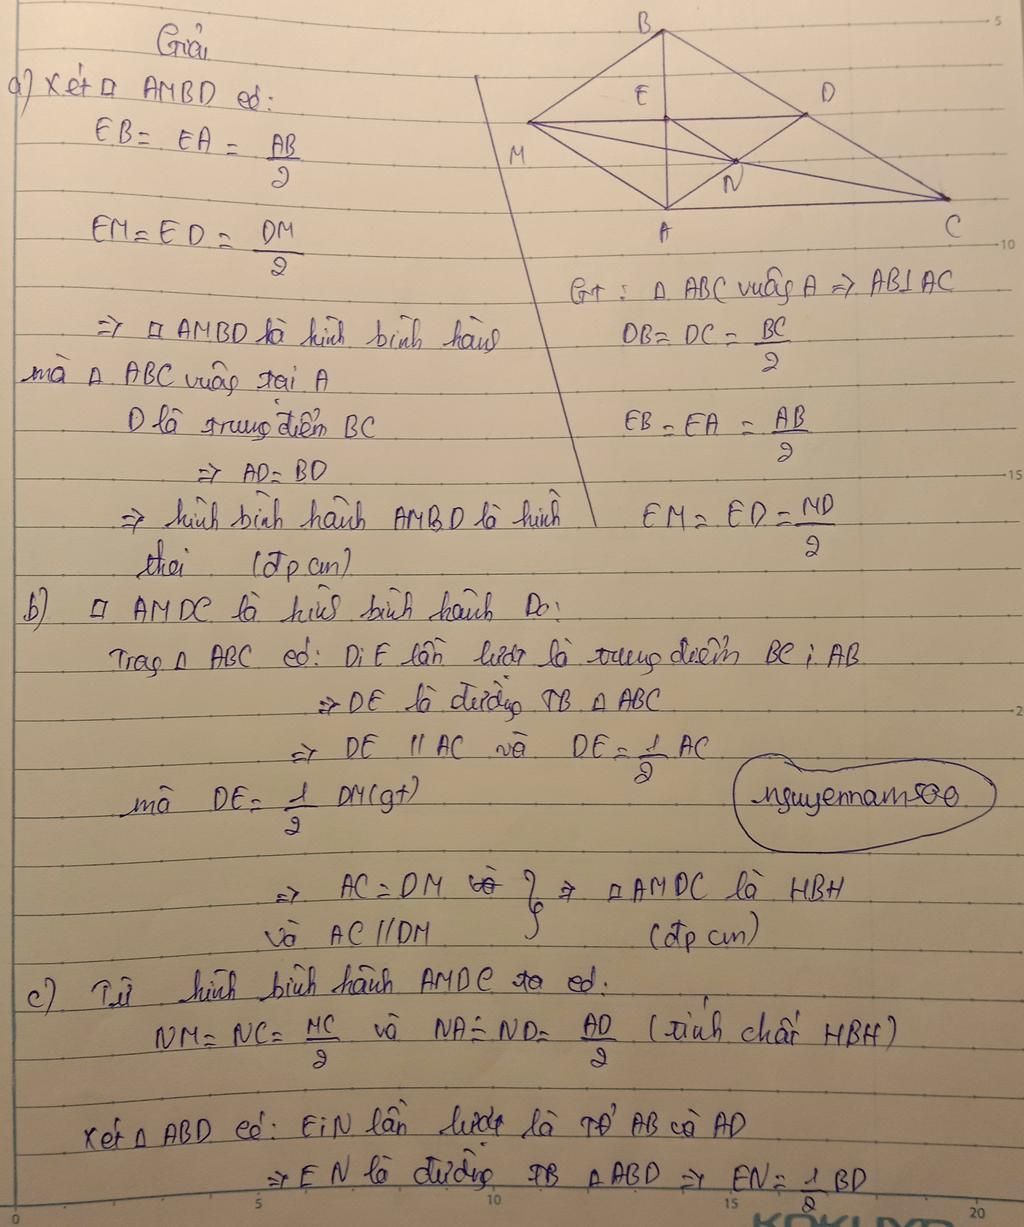 Giải
a) Xét □ AMBD có:
EB = EA = AB/2
EM = ED = DM/2
⇒ □ AMBD là hình bình hành
mà △ ABC vuông tại A
D là trung điểm BC
⇒ AD = BD
⇒ hình bình hành AMBD là hình
thoi (đpcm)
B
E
D
M
N
A
C
Gt : △ ABC vuông A ⇒ AB⊥AC
DB = DC = BC/2
EB = EA = AB/2
EM = ED = MD/2
b) □ AMDC là hình bình hành Do:
Trong △ ABC có: D; E lần lượt là trung điểm BC; AB
⇒ DE là đường TB △ ABC
⇒ DE // AC và DE = 1/2 AC
mà DE = 1/2 DM (gt)
nguyennam500
⇒ AC = DM và } ⇒ □ AMDC là HBH
và AC // DM (đpcm)
c) Từ hình bình hành AMDC ta có:
NM = NC = MC/2 và NA = ND = AD/2 (tính chất HBH)
Xét △ ABD có: E; N lần lượt là TĐ AB và AD
⇒ EN là đường TB △ ABD ⇒ EN = 1/2 BD
5
10
15
2
0
5
10
15
20
KOKUYO